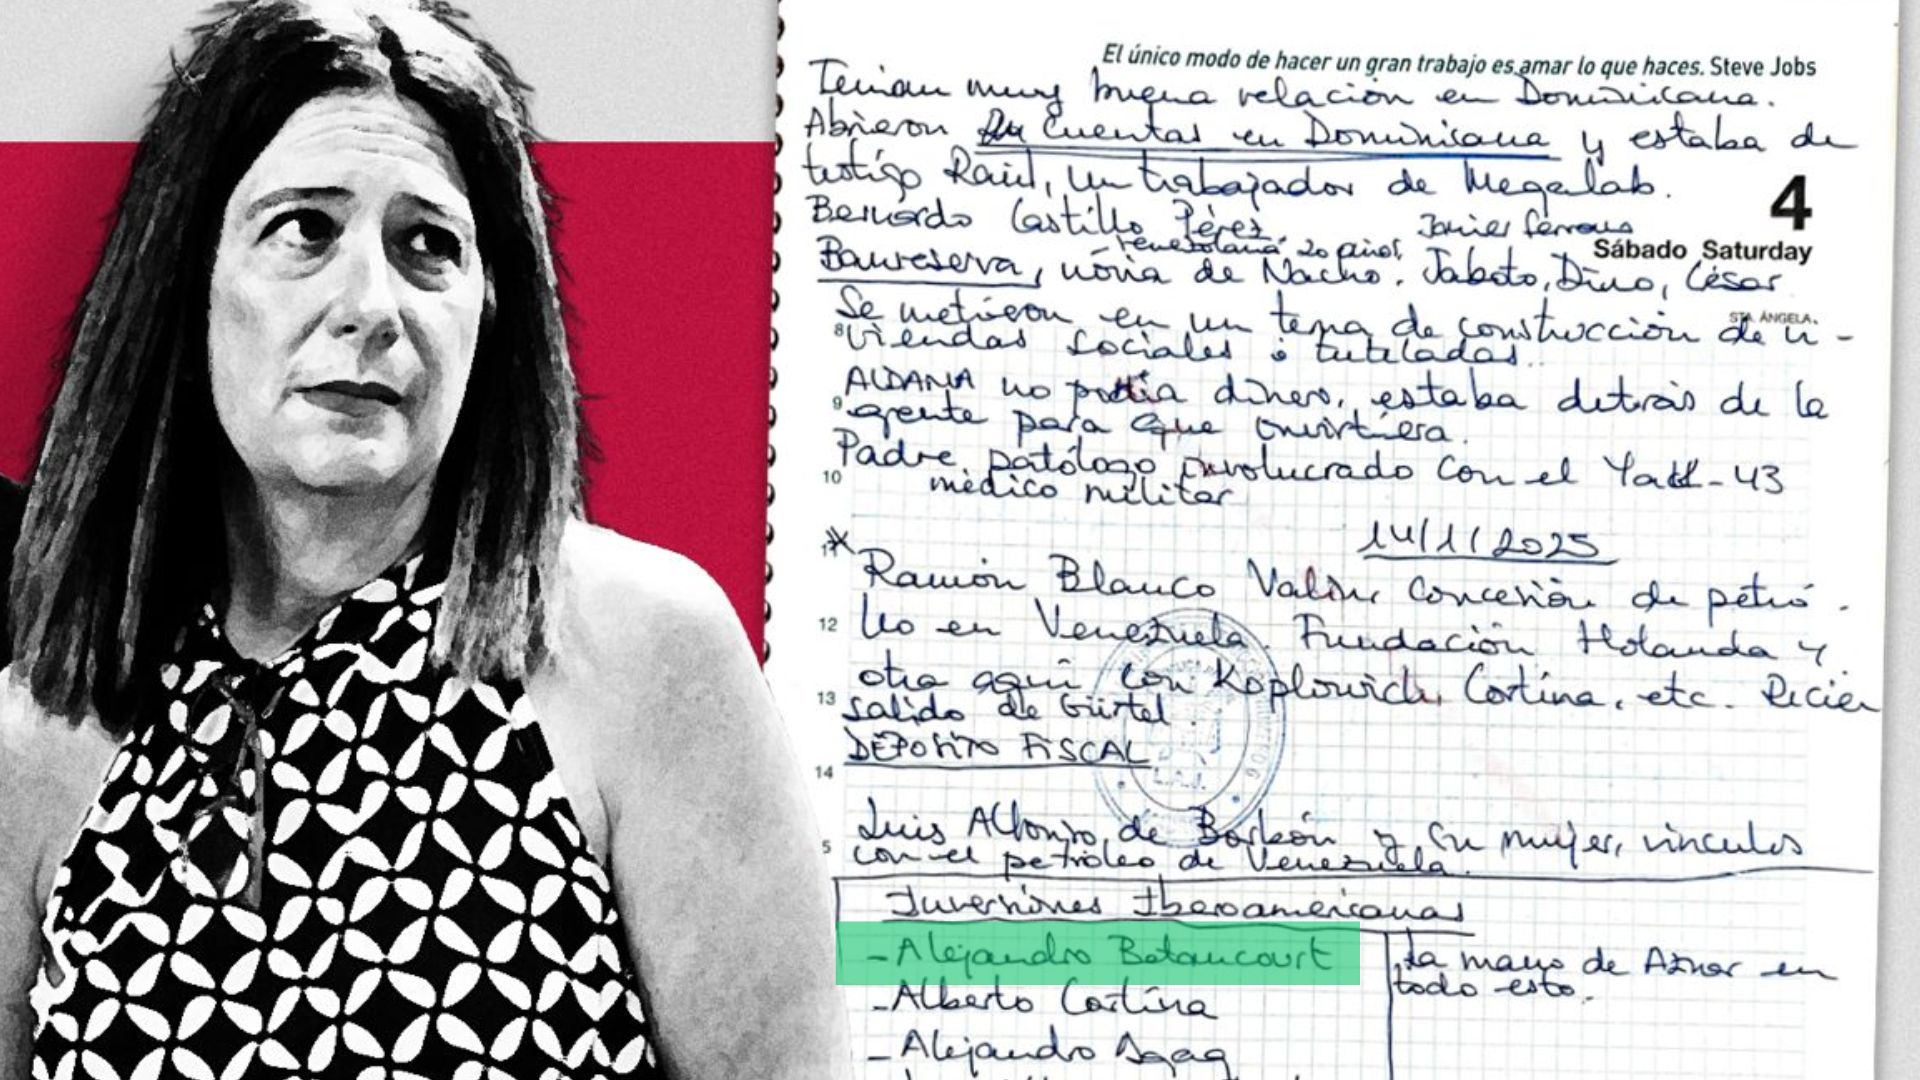 El único modo de hacer un gran trabajo es amar lo que haces. Steve Jobs
Tenían muy buena relación en Dominicana.
Abrieron cuentas en Dominicana y estaba de
testigo Raúl, un trabajador de Megalab.
Bernardo Castillo Pérez Javier
4
Sábado Saturday
venezolana, 20 años,
Banreserva, novia de Nacho. Jaboto, Dino, César
STA. ÁNGELA.
Se metieron en un tema de construcción de vi-
8 viendas sociales o tuteladas.
ALDAMA no pedía dinero, estaba detrás de la
9 gente para que invirtiera.
Padre patólogo involucrado con el Yak-43
10 médico militar
14/1/2025
* Ramón Blanco Concesión de petró-
12 leo en Venezuela. Fundación Holanda y
otra aquí con Koplowich, Cortina, etc. Recién
13 salido de Gürtel.
DEPOSITO FISCAL
14
Luis Alfonso de Borbón y su mujer, vínculos
5 con el petróleo de Venezuela.
Inversiones Iberoamericanas
- Alejandro Betancourt
La mano de Aznar en
todo esto.
- Alberto Cortina
- Alejandro Agag